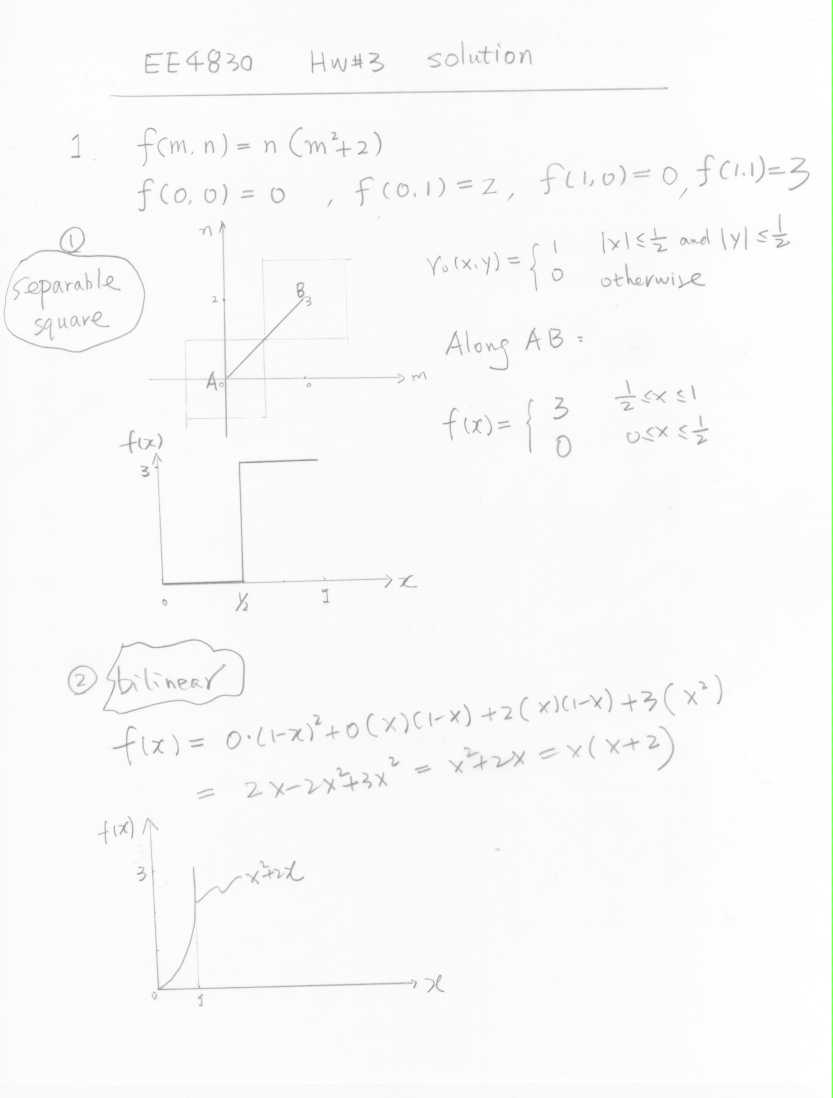 EE4830 HW#3 solution
1. f(m, n) = n (m²+2)
f(0, 0) = 0 , f(0,1) = 2, f(1,0) = 0, f(1,1) = 3
①
separable
square
n
2
B
3
A 0
0
m
r₀(x,y) = { 1 |x| ≤ 1/2 and |y| ≤ 1/2
0 otherwise
Along AB :
f(x) = { 3 1/2 ≤ x ≤ 1
0 0 ≤ x ≤ 1/2
f(x)
3
0 1/2 1 x
② bilinear
f(x) = 0·(1-x)² + 0(x)(1-x) + 2(x)(1-x) + 3(x²)
= 2x-2x²+3x² = x²+2x = x(x+2)
f(x)
3
x²+2x
0 1 x